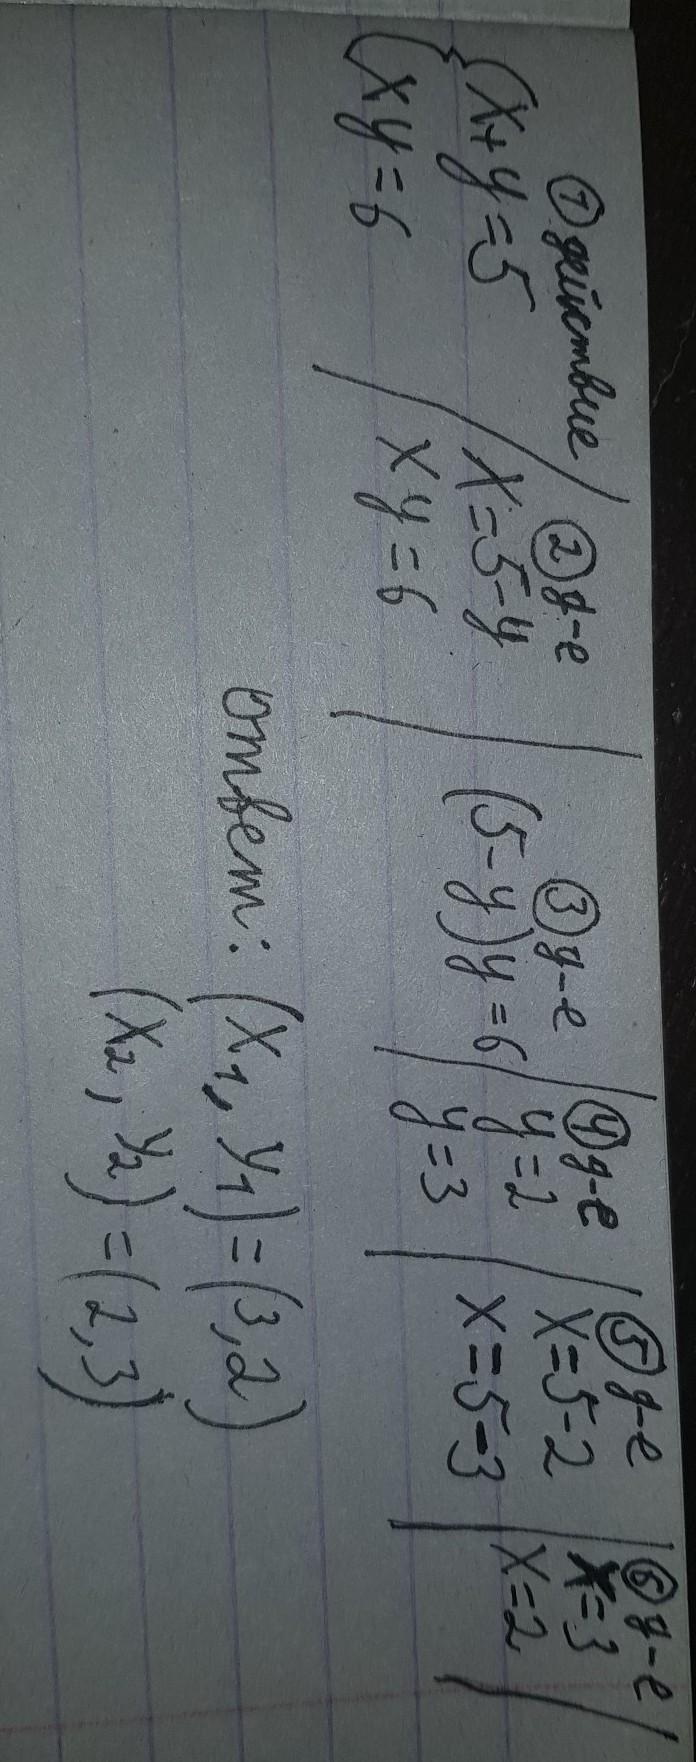 ① действие
{ x+y=5
{ xy=6
② д-е
x=5-y
xy=6
③ д-е
(5-y)y=6
④ д-е
y=2
y=3
⑤ д-е
x=5-2
x=5-3
⑥ д-е
x=3
x=2
Ответ: (x₁, y₁)=(3,2)
(x₂, y₂)=(2,3)